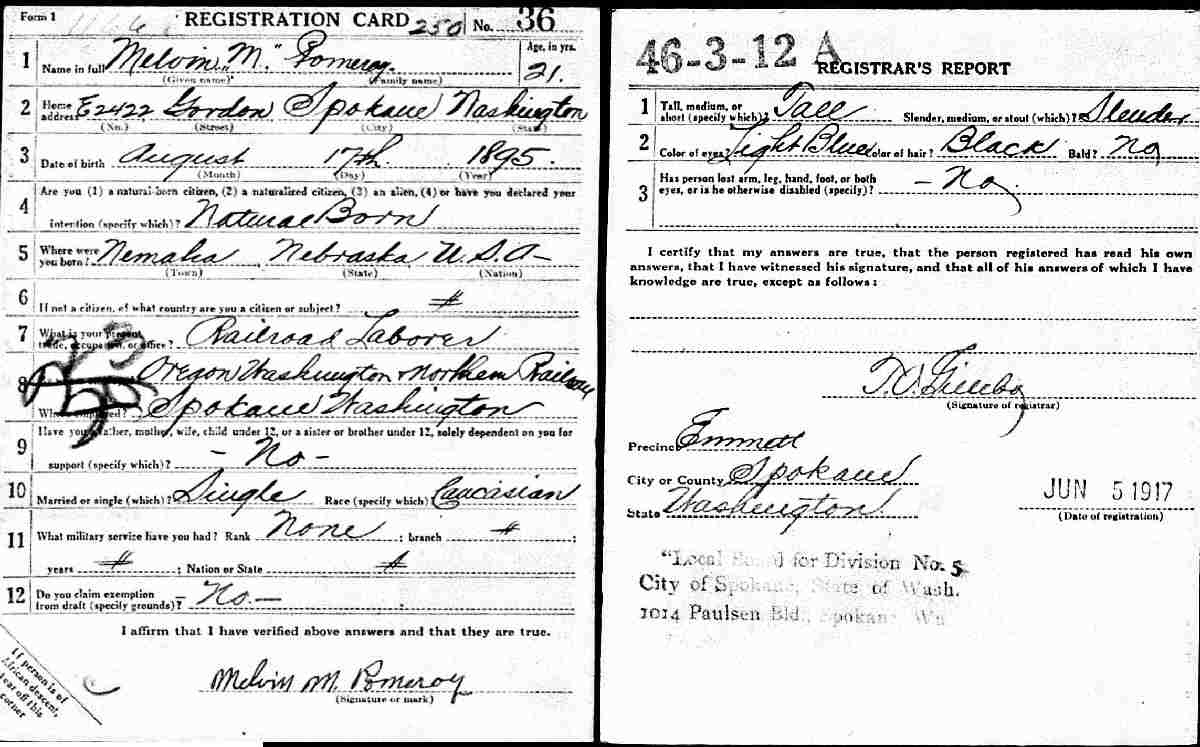 Form 1
REGISTRATION CARD 250 No. 36
1 Name in full Melvin "M." Pomeroy. Age, in yrs. 21.
(Given name) (Family name)
2 Home address E2422 Gordon Spokane Washington
(No.) (Street) (City) (State)
3 Date of birth August 17th 1895.
(Month) (Day) (Year)
4 Are you (1) a natural-born citizen, (2) a naturalized citizen, (3) an alien, (4) or have you declared your
intention (specify which)? Natural Born
5 Where were you born? Nemaha Nebraska U.S.A-
(Town) (State) (Nation)
6 If not a citizen, of what country are you a citizen or subject?
7 What is your present trade, occupation, or office? Railroad Laborer
23
8 Oregon Washington + Northern Railway
Where employed? Spokane Washington
9 Have you a father, mother, wife, child under 12, or a sister or brother under 12, solely dependent on you for
support (specify which)? - No -
10 Married or single (which)? Single Race (specify which)? Caucasian
11 What military service have you had? Rank None ; branch ;
years ; Nation or State
12 Do you claim exemption from draft (specify grounds)? - No. -
I affirm that I have verified above answers and that they are true.
Melvin M. Pomeroy
(Signature or mark)
If person is of
African descent,
tear off this
corner
46-3-12 A
REGISTRAR'S REPORT
1 Tall, medium, or short (specify which)? Tall Slender, medium, or stout (which)? Slender
2 Color of eyes? Light Blue Color of hair? Black Bald? No
3 Has person lost arm, leg, hand, foot, or both eyes, or is he otherwise disabled (specify)? - No.
I certify that my answers are true, that the person registered has read his own
answers, that I have witnessed his signature, and that all of his answers of which I have
knowledge are true, except as follows:
(Signature of registrar)
Precinct Emmett
City or County Spokane
State Washington
JUN 5 1917
(Date of registration)
"Local Board for Division No. 5
City of Spokane, State of Wash.
1014 Paulsen Bld., Spokane Wn